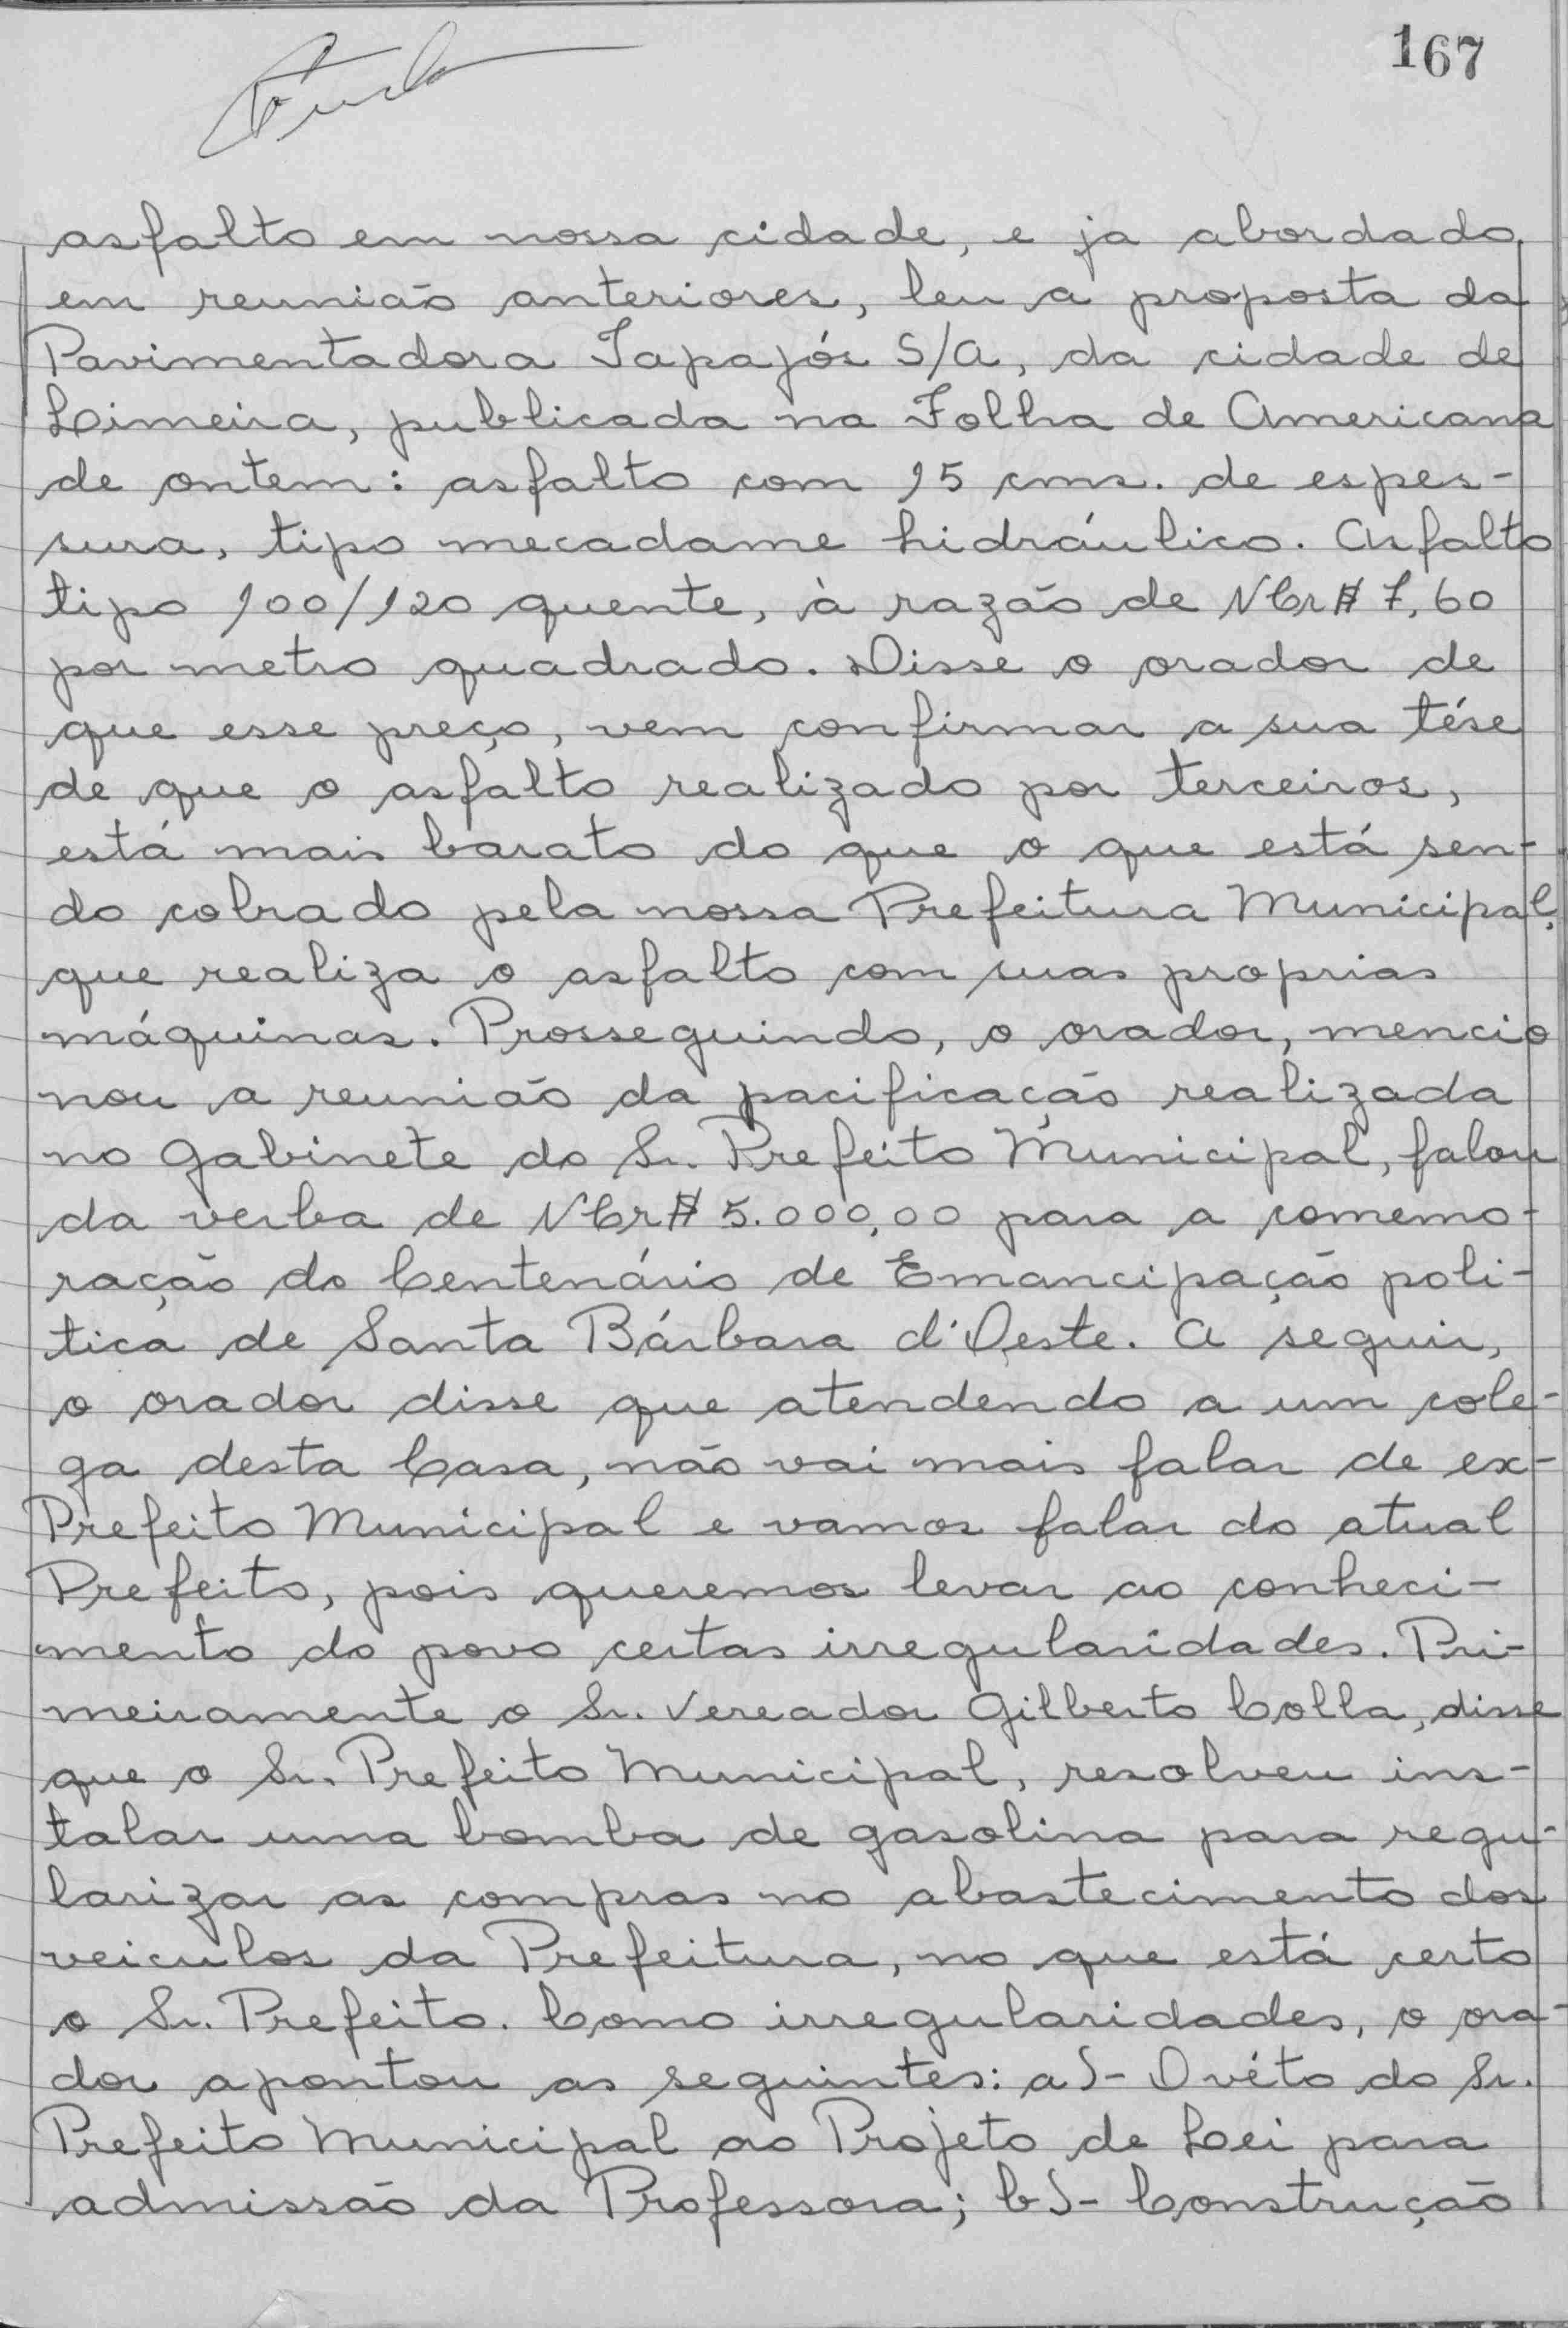 167
asfalto em nossa cidade, e ja abordado
em reunião anteriores, leu a proposta da
Pavimentadora Tapajós S/A, da cidade de
Limeira, publicada na Folha de Americana
de ontem: asfalto com 15 cms. de espes-
sura, tipo mecadame hidráulico. Asfalto
tipo 100/120 quente, à razão de NCr$ 7,60
por metro quadrado. Disse o orador de
que esse preço, vem confirmar a sua tése
de que o asfalto realizado por terceiros,
está mais barato do que o que está sen-
do cobrado pela nossa Prefeitura Municipal,
que realiza o asfalto com suas proprias
máquinas. Prosseguindo, o orador, mencio
nou a reunião da pacificação realizada
no Gabinete do Sr. Prefeito Municipal, falou
da verba de NCr$ 5.000,00 para a comemo-
ração do Centenário de Emancipação poli-
tica de Santa Bárbara d'Oeste. A seguir,
o orador disse que atendendo a um cole-
ga desta Casa, não vai mais falar de ex-
Prefeito Municipal e vamos falar do atual
Prefeito, pois queremos levar ao conheci-
mento do povo certas irregularidades. Pri-
meiramente o Sr. Vereador Gilberto Colla, disse
que o Sr. Prefeito Municipal, resolveu ins-
talar uma bomba de gasolina para regu-
larizar as compras no abastecimento dos
veiculos da Prefeitura, no que está certo
o Sr. Prefeito. Como irregularidades, o ora-
dor apontou as seguintes: a)- O véto do Sr.
Prefeito Municipal ao Projeto de Lei para
admissão da Professora; b)- Construção